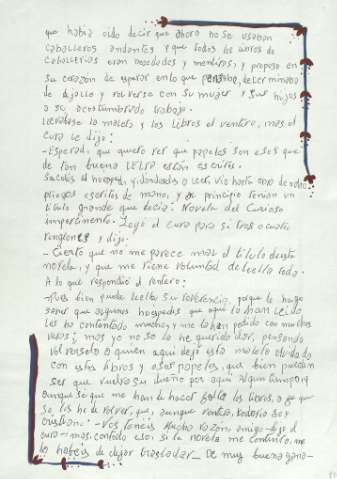 que habia oido decir que ahora no se usaban
caballeros andantes y que todos los libros de
caballerias eran necedades y mentiras, y propuso en
su corazon de esperar en lo que pensaba, determinaba
de dejallo y volverse con su mujer y sus hijos
a su acostumbrado trabajo.
Llevabase la maleta y los libros el ventero, mas el
cura le dijo:
-Esperad, que quiero ver que papeles son esos que
de tan buena letra estan escritos.
Sacolos el huesped, y dandoselos a leer, vio hasta obra de ocho
pliegos escritos de mano, y al principio tenian un
titulo grande que decia: Novela del Curioso
impertinente. Leyó el cura para si tres o cuatro
renglones y dijo:
-Cierto que no me parece mal el titulo desta
novela, y que me viene voluntad de leella toda.
A lo que respondió el ventero:
-Pues bien puede leella su reverencia, porque le hago
saber que algunos huespedes que aqui la han leido
les ha contentado mucho, y me la han pedido con muchas
veras; mas yo no se la he querido dar, pensando
volversela a quien aqui dejó esta maleta olvidada
con estos libros y esos papeles, que bien puede
ser que vuelva su dueño por aqui algun tiempo y
aunque se que me han de hacer falta los libros, a fe que
se los he de volver, que, aunque ventero, todavia soy
cristiano. -Vos teneis mucha razon, amigo-dijo el
cura-mas, con todo eso, si la novela me contenta, me
la habeis de dejar trasladar_ De muy buena gana-